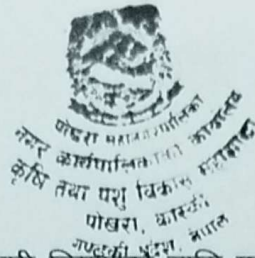 पोखरा महानगरपालिका
नगर कार्यपालिकाको कार्यालय
कृषि तथा पशु विकास महाशाखा
पोखरा, कास्की
गण्डकी प्रदेश, नेपाल